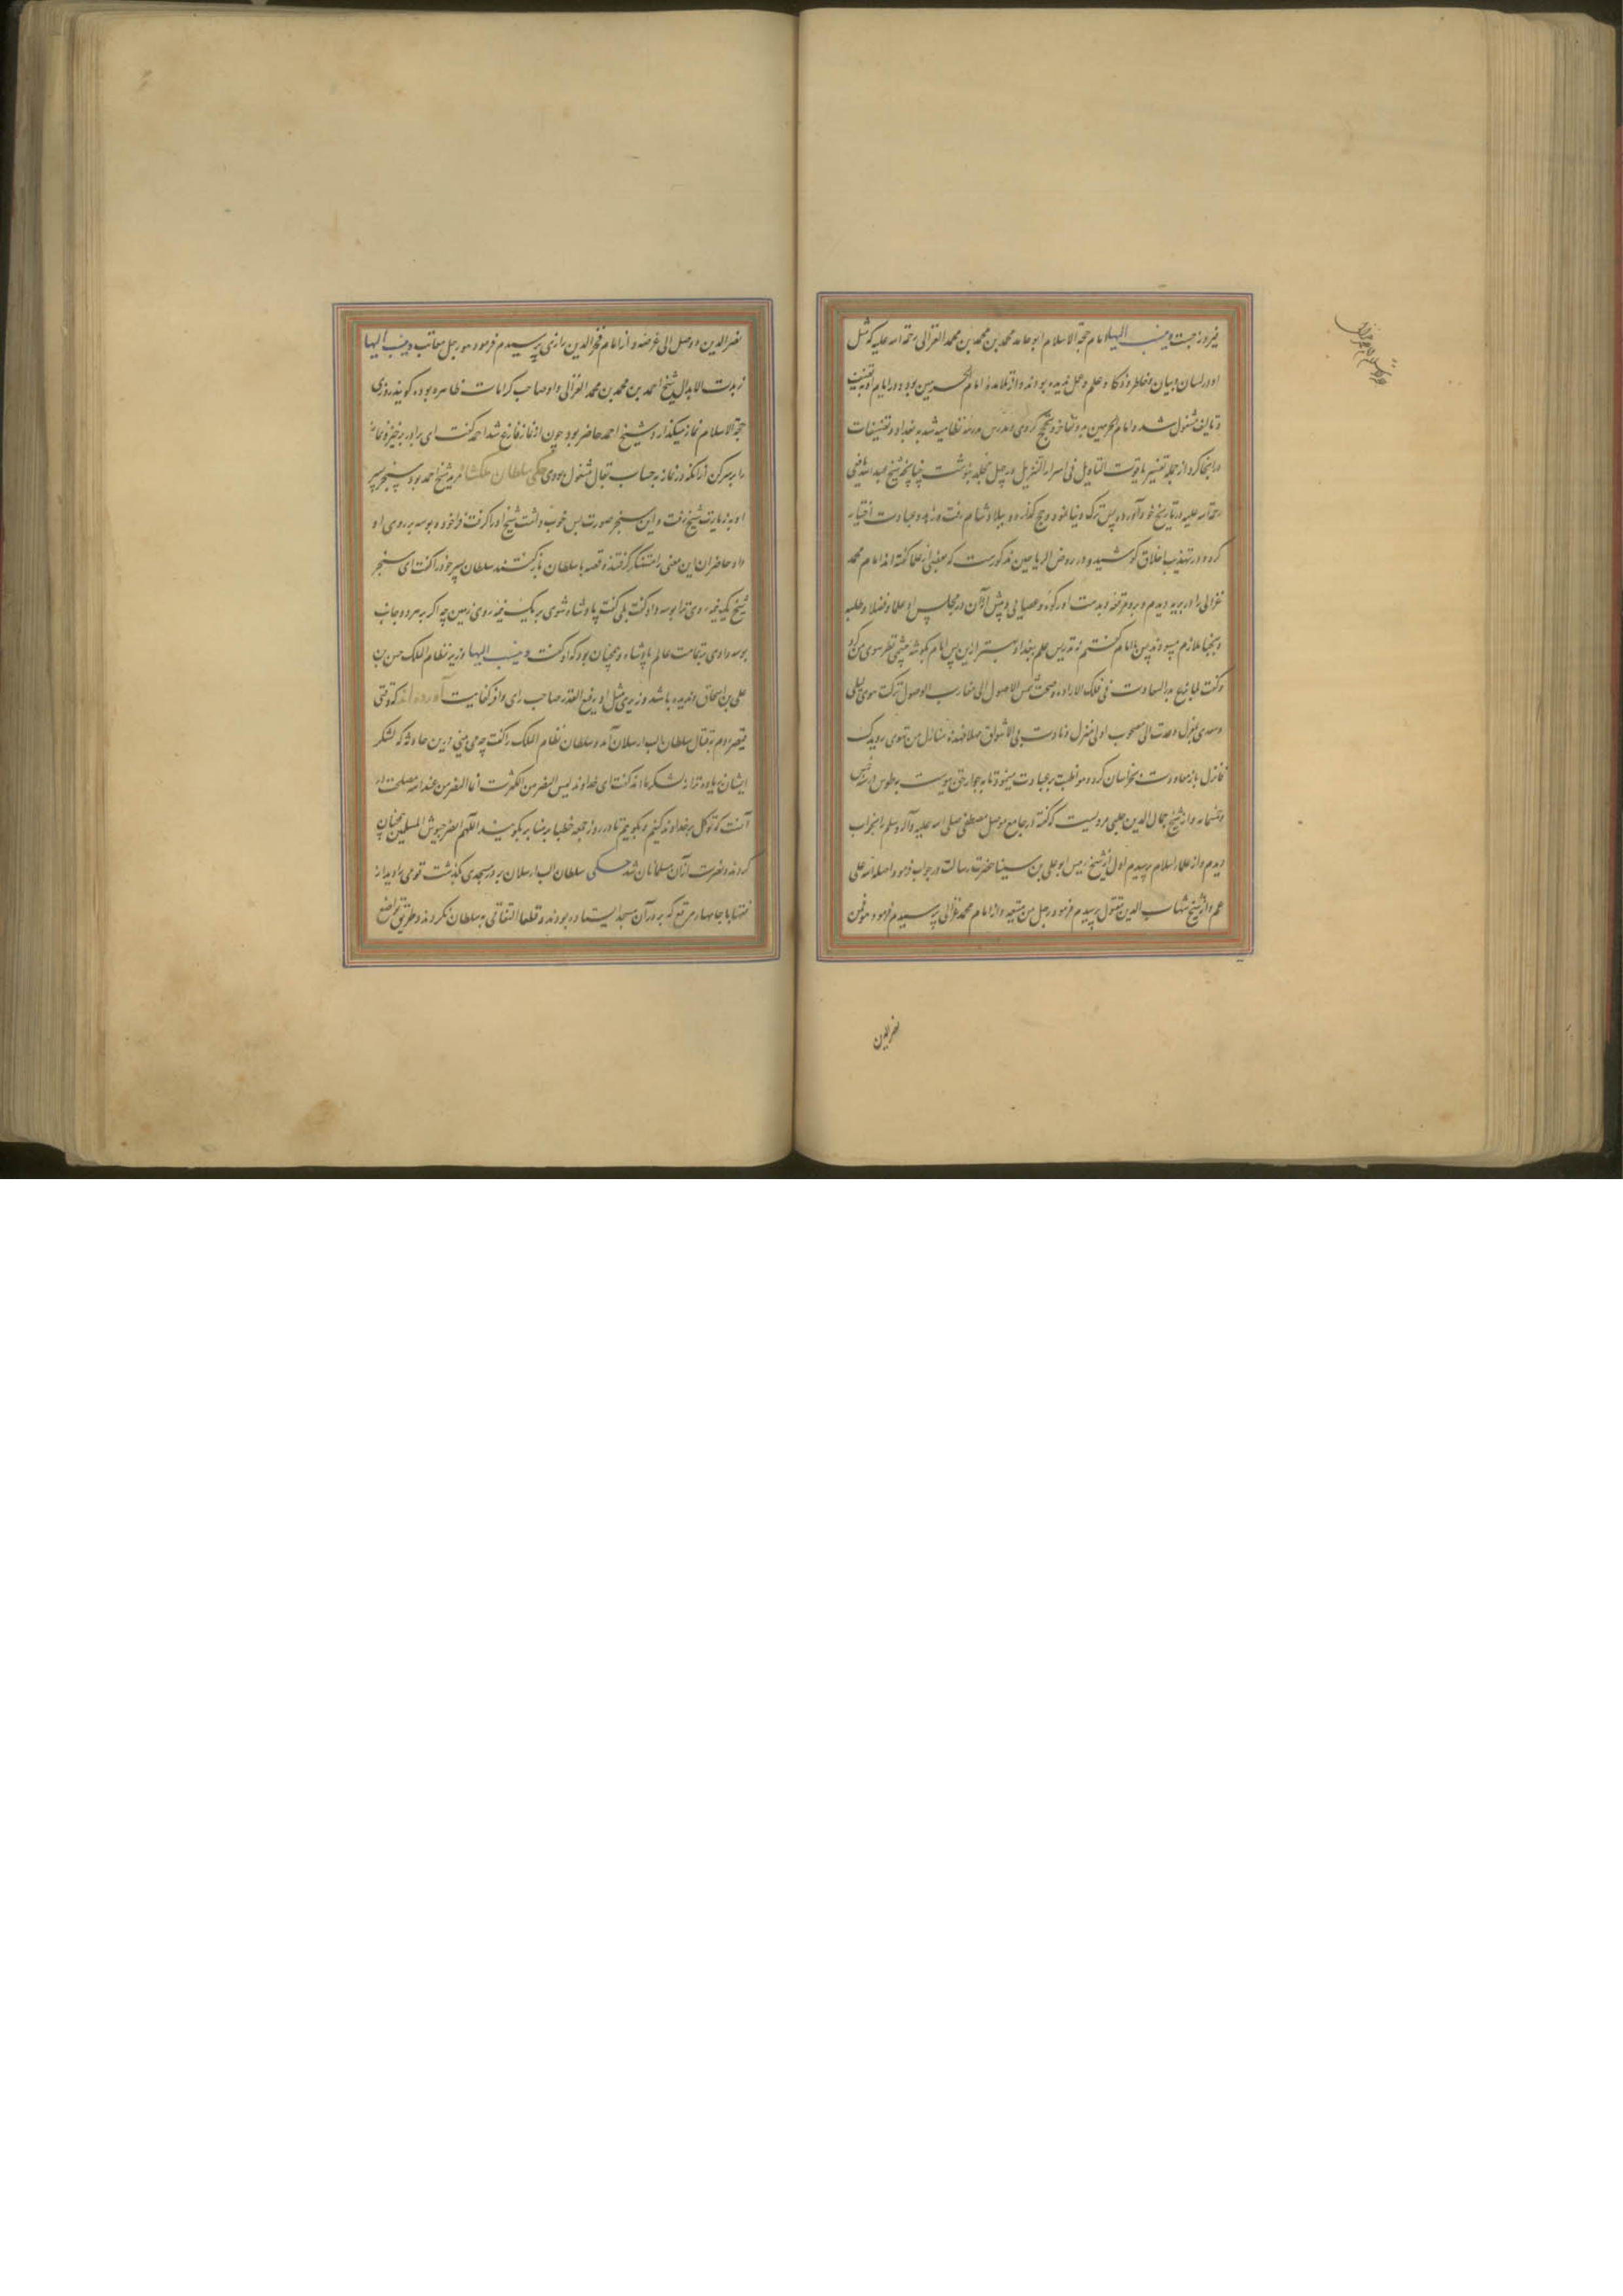 فیروز جست وینسب الیها امام حجة الاسلام ابو حامد محمد بن محمد بن محمد الغزالی رحمة الله علیه که مثل
او در لسان و بیان و خاطر و ذکا و علم و عمل ندیده بودند و از تلامذهٔ امام الحرمین بود و در ایام او بتصنیف
و تالیف مشغول شد و امام الحرمین بدو تفاخر و تبجح کردی و مدرس مدرسه نظامیه شد به بغداد و تصنیفات
در آنجا کرد از جمله تفسیر یاقوت التاویل فی اسرار التنزیل در چهل مجلد نوشت چنانچه شیخ عبد الله یافعی
رحمة الله علیه در تاریخ خود آورده پس ترک دنیا نمود و حج گذارد و ببلاد شام رفت و زهد و عبادت اختیار
کرد و در تهذیب اخلاق کوشید و در روض الریاحین مذکورست که بعضی از علما گفته اند امام محمد
غزالی را در بریه دیدم و برو مرقعه و بدست او رکوه و عصایی و پیش از آن در مجلس او علما و فضلا و طلبه
و نجبا ملازم میبودند پس با امام گفتم نه تدریس علم ببغداد بهتر ازین پس امام بگوشه چشمی نظر سوی من کرد
و گفت لما بزغ بدر السعادت فی فلک الاراده و جنحت شمس الاصول الی مغارب الوصول ترکت هوی لیلی
وسعدی بمنزل وعدت الی مصحوب اول منزل ونادت بی الاشواق مهلا فهذه منازل من تهوی رویدک
فانزل باز معاودت بخراسان کرد و مواظبت بر عبادت مینمود تا بجوار حق پیوست بطوس در سنه خمس
وخمسمایه و از شیخ جمال الدین جلبی مرویست که گفته در جامع موصل مصطفی صلی الله علیه وآله وسلم را بخواب
دیدم و از علماء اسلام پرسیدم اول از شیخ رئیس ابو علی بن سینا حضرت رسالت در جواب فرمود اضله الله علی
علم و از شیخ شهاب الدین مقتول پرسیدم فرمود رجل من متبعیه و از امام محمد غزالی پرسیدم فرمود مؤمن
نصر الدین
نصر الدین و رجل الی غرضه و از امام فخر الدین رازی پرسیدم فرمود هو رجل معاتب وینسب الیها
زبدت الابدال شیخ احمد بن محمد بن محمد الغزالی و او صاحب کرامات ظاهره بوده گویند روزی
حجة الاسلام نماز میگذارد و شیخ احمد حاضر بود چون از نماز فارغ شد احمد گفت ای برادر برخیز و نماز
را بسر کن زانکه در نماز به حساب بقال مشغول بودی حکی سلطان ملکشاه مرید شیخ احمد بود سنجر پسر
او بزیارت شیخ رفت و این سنجر صورت بس خوب داشت شیخ او را گرفت فراخود و بوسه بر روی او
داد حاضران این معنی را مستنکر گرفتند و قصه با سلطان باز گفتند سلطان پسر خود را گفت ای سنجر
شیخ یک نیمه روی ترا بوسه داد گفت بلی گفت پادشاه شوی بر یک نیمه روی زمین چه اگر بر هر دو جانب
بوسه دادی بر تمامت عالم پادشاه و همچنان بود که او گفت وینسب الیها وزیر نظام الملک حسن بن
علی بن اسحاق و ندیده باشد وزیری مثل او رفیع القدر صاحب رای وافر کفایت آورده اند که وقتی
قیصر روم بقتال سلطان الب ارسلان آمد و سلطان نظام الملک را گفت چه می بینی درین حادثه که لشکر
ایشان زیاده تر از لشکر ما اند گفت ای خداوند لیس النصر من الکثرت انما النصر من عند الله مصلحت در
آنست که توکل بر خداوند کنیم و بگوییم تا در روز جمعه خطبا بر منابر بگویند اللهم انصر جیوش المسلمین همچنان
کردند و نصرت از آن مسلمانان شد حکی سلطان الب ارسلان بر در مسجدی بگذشت قومی را دید از
فقها با جامهاء مرقع که بر در آن مسجد ایستاده بودند و قطعا التفاتی به سلطان نکردند و طریق تواضع